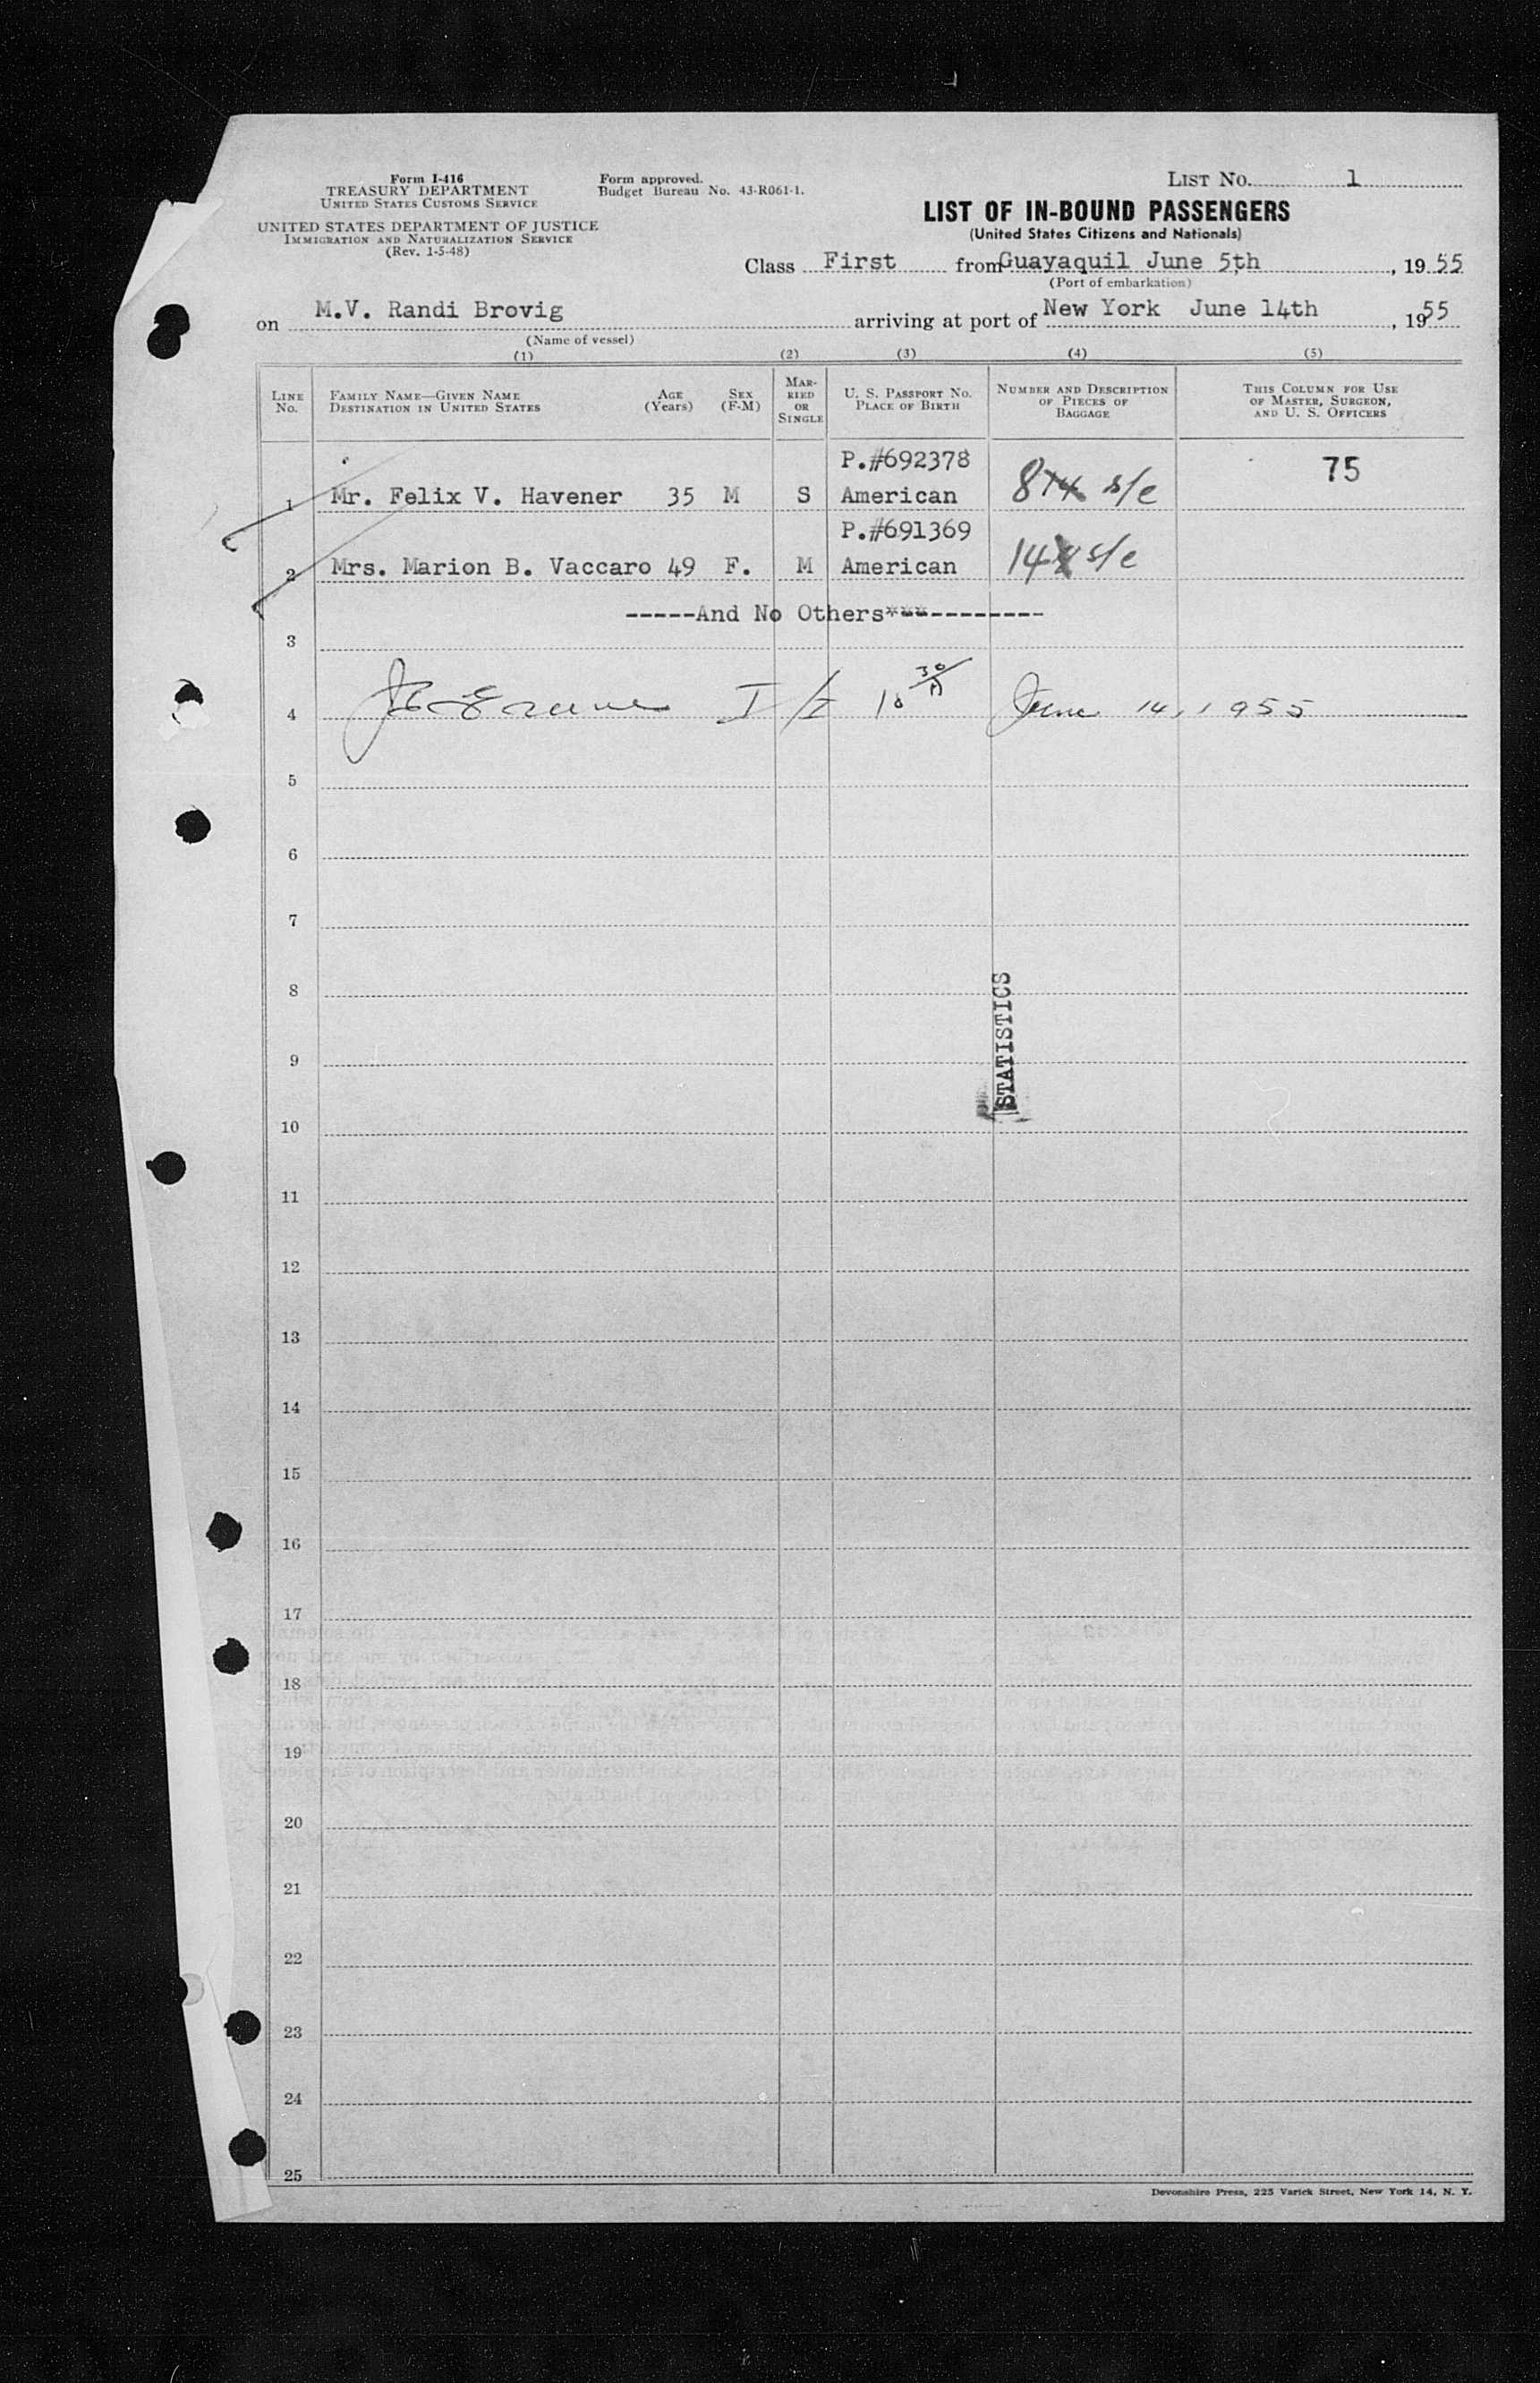 Form I-416
TREASURY DEPARTMENT
UNITED STATES CUSTOMS SERVICE
UNITED STATES DEPARTMENT OF JUSTICE
IMMIGRATION AND NATURALIZATION SERVICE
(Rev. 1-5-48)
Form approved.
Budget Bureau No. 43-R061-1.
LIST NO. 1
LIST OF IN-BOUND PASSENGERS
(United States Citizens and Nationals)
Class First from Guayaquil June 5th, 19 55
(Port of embarkation)
on M.V. Randi Brovig arriving at port of New York June 14th, 19 55
(Name of vessel)
(1) (2) (3) (4) (5)
LINE No. FAMILY NAME—GIVEN NAME DESTINATION IN UNITED STATES AGE (Years) SEX (F-M) MARRIED OR SINGLE U. S. PASSPORT NO. PLACE OF BIRTH NUMBER AND DESCRIPTION OF PIECES OF BAGGAGE THIS COLUMN FOR USE OF MASTER, SURGEON, AND U. S. OFFICERS
P.#692378 75
1 Mr. Felix V. Havener 35 M S American 8 s/c
P.#691369
2 Mrs. Marion B. Vaccaro 49 F. M American 14 s/c
-----And No Others***--------
3
4 June 14, 1955
5
6
7
8
STATISTICS
9
10
11
12
13
14
15
16
17
18
19
20
21
22
23
24
25
Devonshire Press, 225 Varick Street, New York 14, N. Y.